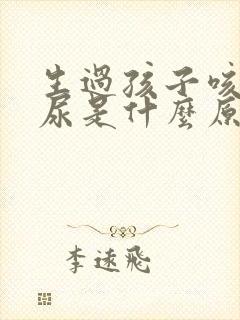 生過孩子咳
尿是什麼原
李遠飛